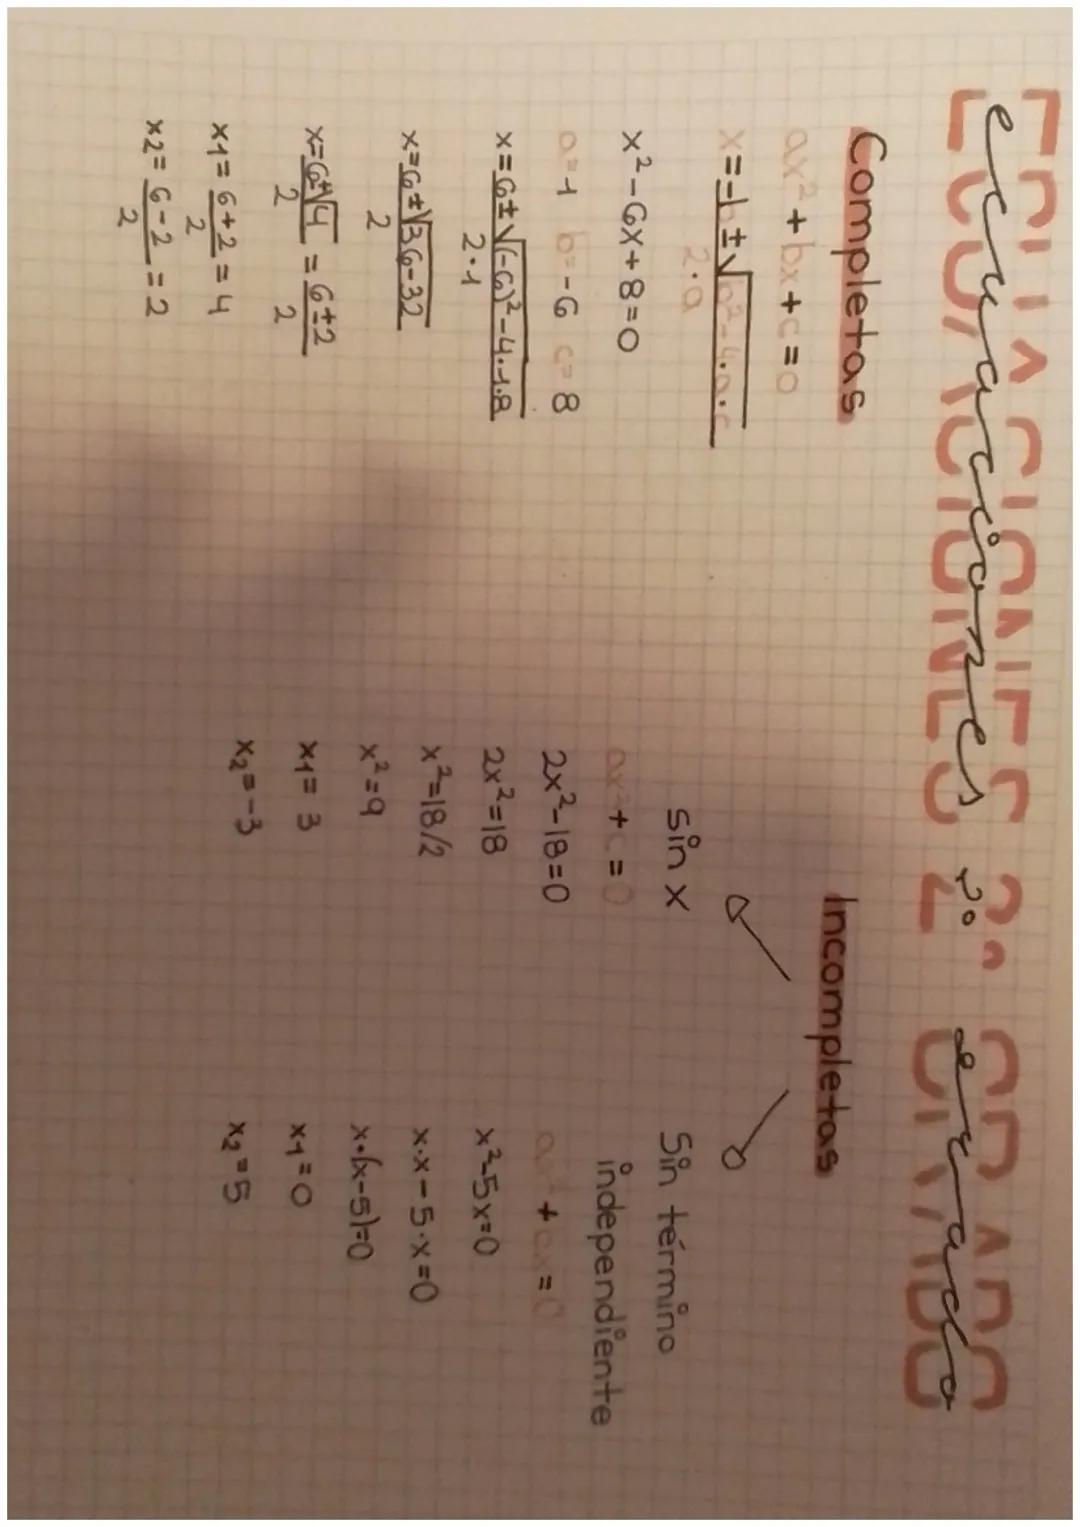 ECUACIONES 2º GRADO
ecuaciones 2º grado
Completas
ax²+bx+c=0
x=-b±√b²-4·a·c
2·a
x²-6x+8=0
a=1 b=-6 c=8
x=6±√(-6)²-4·1·8
2·1
x=6±√36-32
2
x=6±√4 = 6±2
2 2
x1=6+2=4
2
x2=6-2=2
2
Incompletas
sin x
ax²+c=0
2x²-18=0
2x²=18
x²=18/2
x²=9
x1=3
x2=-3
Sin término
independiente
x²-5x=0
x·x-5·x=0
x·(x-5)=0
x1=0
x2=5